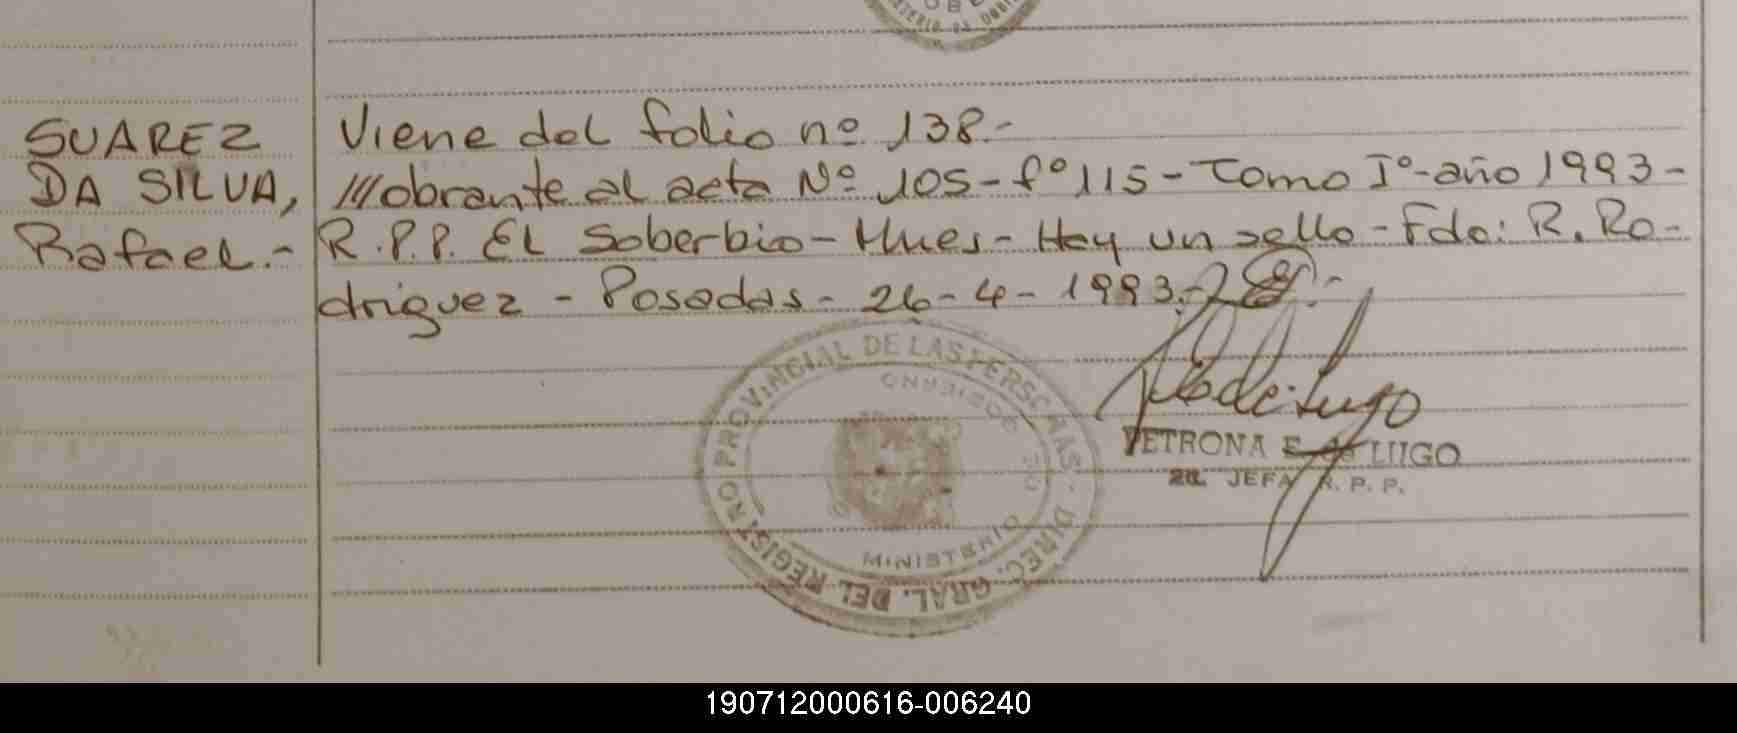 SUAREZ
DA SILVA,
Rafael.-
Viene del folio nº 138.-
///obrante al acta Nº 105-fº115-Tomo Iº-año 1993-
R.P.P. EL Soberbio- Mnes- Hay un sello-Fdo: R. Ro-
driguez - Posadas- 26-4-1993.-
DIREC. GRAL. DEL REGISTRO PROVINCIAL DE LAS PERSONAS
MINISTERIO DE GOBIERNO
PETRONA E. LUGO
2a. JEFA R. P. P.
190712000616-006240